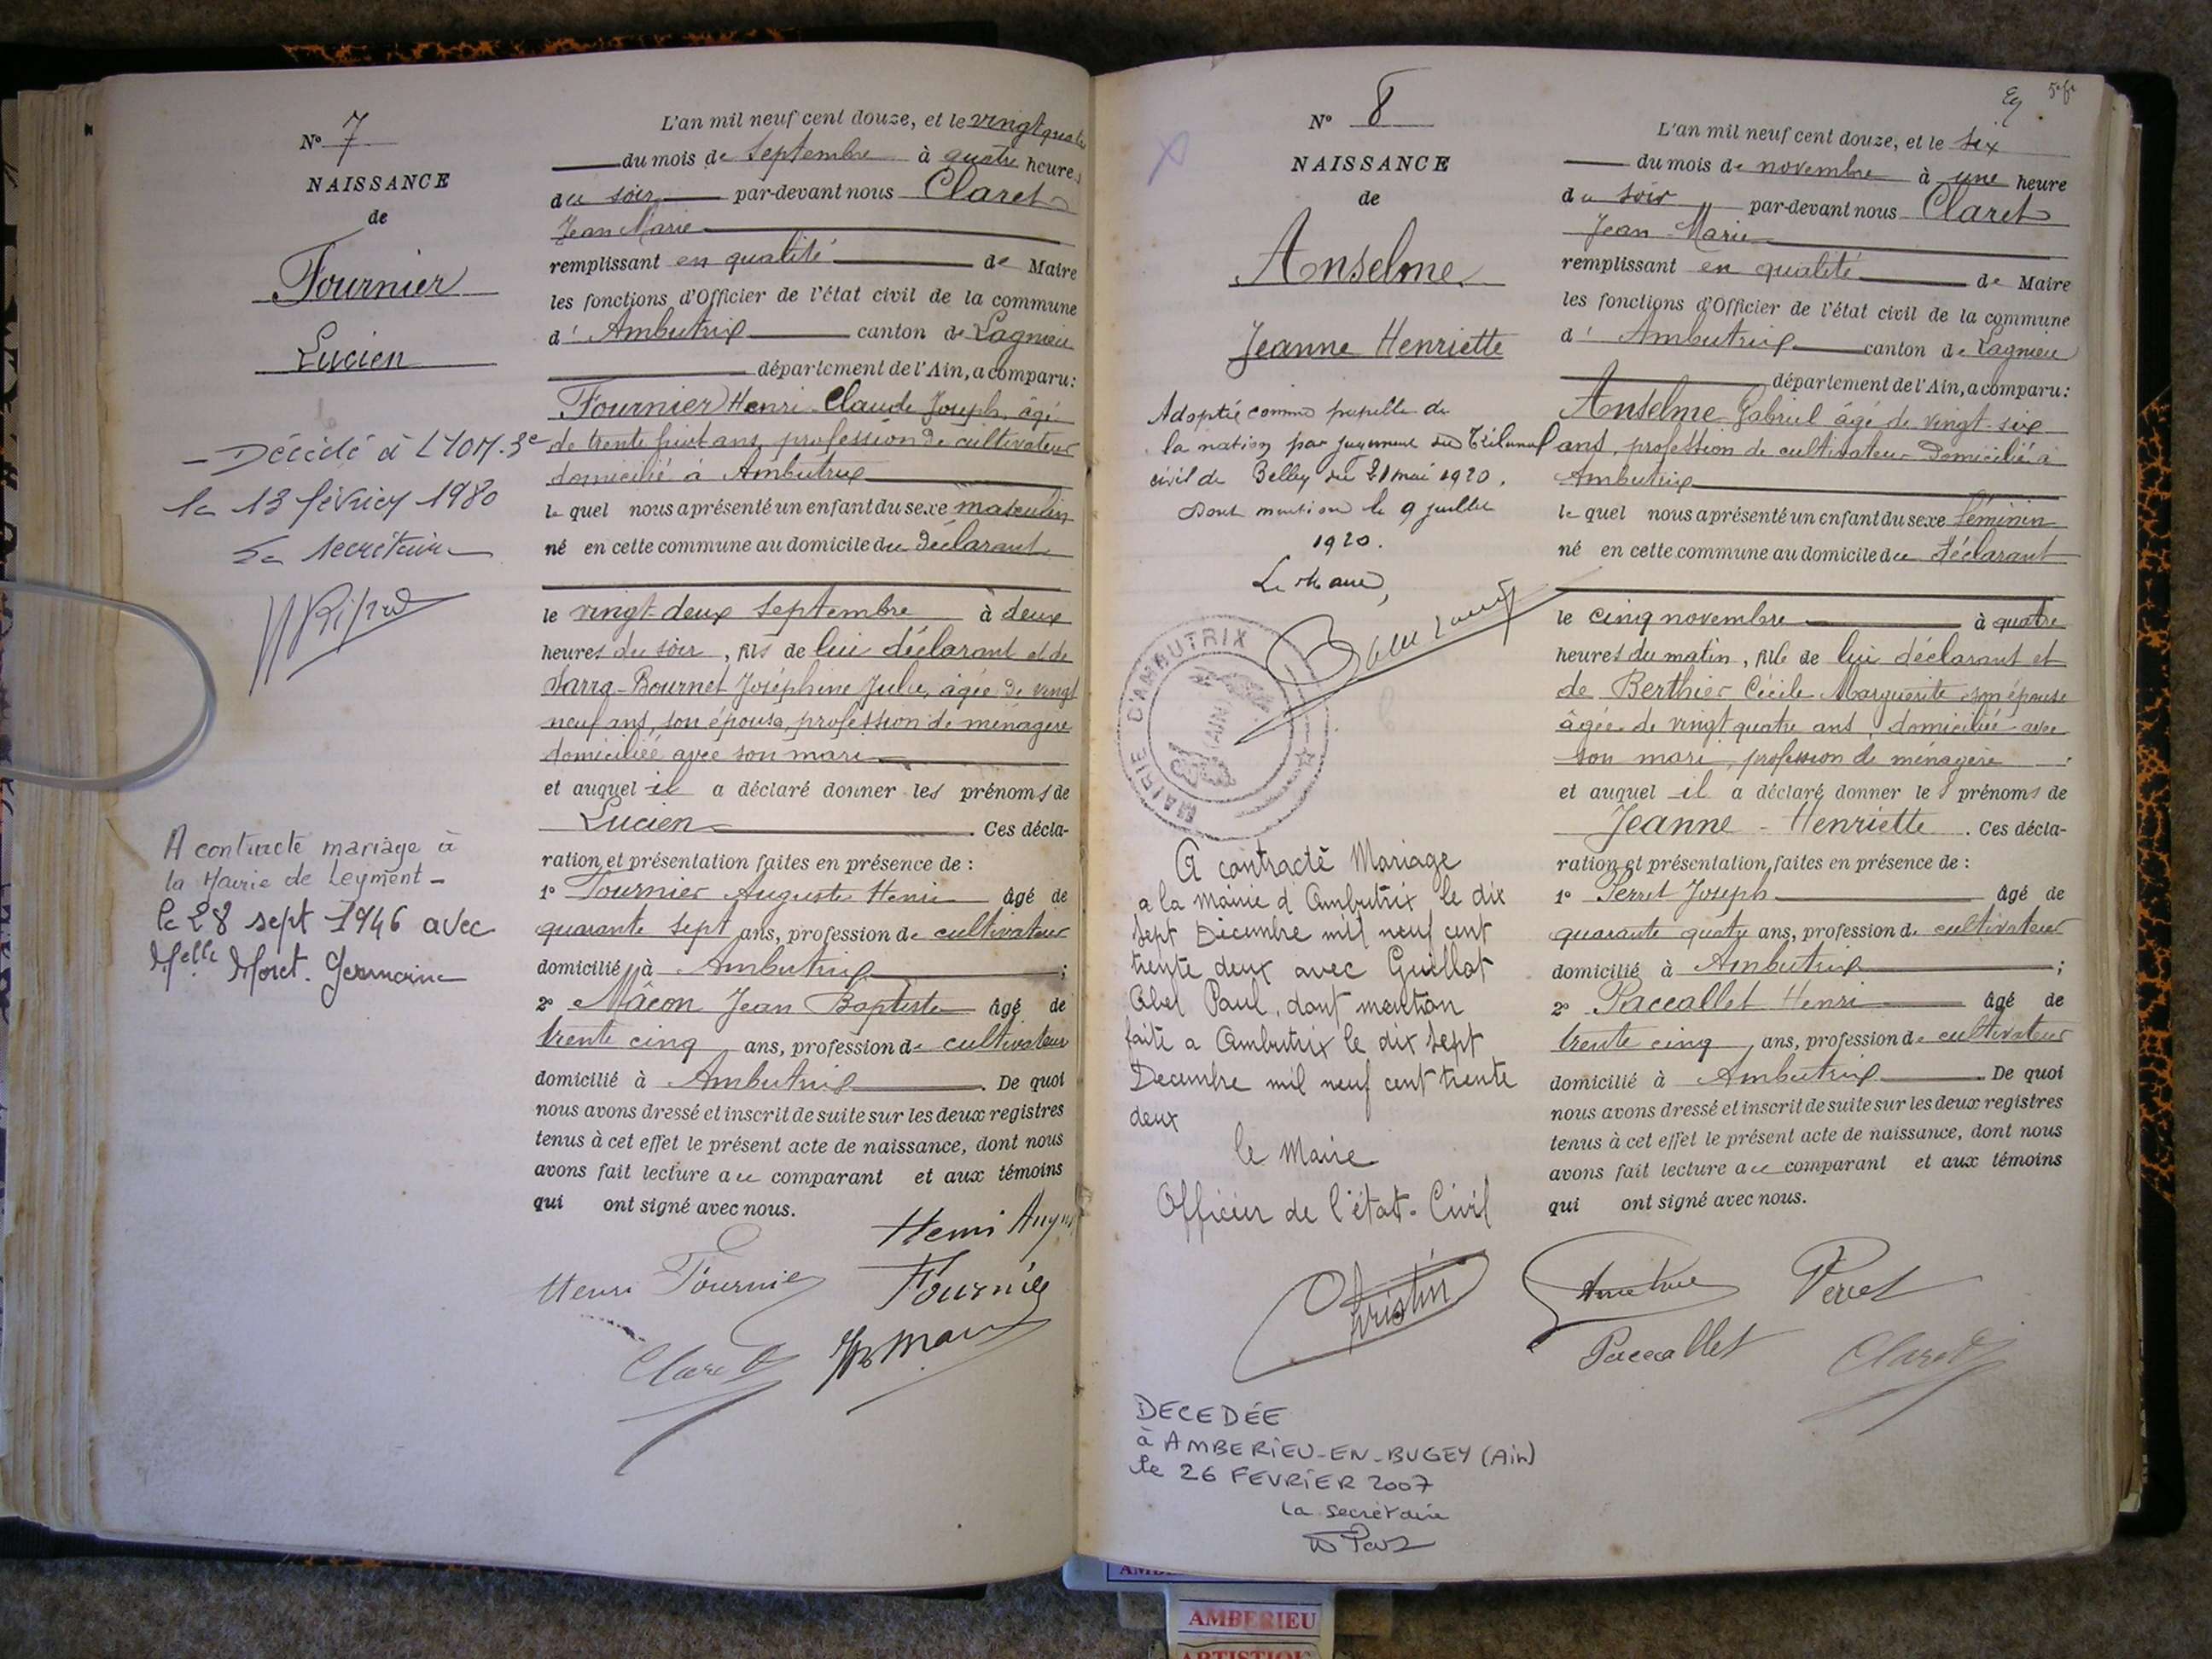 N° 7
NAISSANCE
de
Fournier
Lucien
- Décédé à LYON. 3e
le 13 février 1980
La secrétaire
A contracté mariage à
la Mairie de Leyment -
le 28 sept 1946 avec
Melle Moret. Germaine
L'an mil neuf cent douze, et le vingt quatre
du mois de septembre à quatre heures
du soir par-devant nous Claret
Jean Marie
remplissant en qualité de Maire
les fonctions d'Officier de l'état civil de la commune
d' Ambutrix canton de Lagnieu
département de l'Ain, a comparu:
Fournier Henri Claude Joseph, âgé
de trente huit ans, profession de cultivateur
domicilié à Ambutrix
le quel nous a présenté un enfant du sexe masculin
né en cette commune au domicile du déclarant
le vingt-deux septembre à deux
heures du soir, fils de lui déclarant et de
Sarra-Bournet Joséphine Julie, âgée de vingt
neuf ans, son épouse, profession de ménagère
domiciliée avec son mari
et auquel il a déclaré donner les prénoms de
Lucien. Ces décla-
ration et présentation faites en présence de :
1° Fournier Auguste Henri âgé de
quarante sept ans, profession de cultivateur
domicilié à Ambutrix ;
2° Mâcon Jean Baptiste âgé de
trente cinq ans, profession de cultivateur
domicilié à Ambutrix. De quoi
nous avons dressé et inscrit de suite sur les deux registres
tenus à cet effet le présent acte de naissance, dont nous
avons fait lecture au comparant et aux témoins
qui ont signé avec nous.
Henri
Henri Fournier Fournier
Claret
N° 8
NAISSANCE
de
Anselme
Jeanne Henriette
Adoptée comme pupille de
la nation par jugement du Tribunal
civil de Belley du 21 mai 1920.
Dont mention le 9 juillet
1920.
Le Maire,
MAIRIE D'AMBUTRIX
(AIN)
A contracté Mariage
a la mairie d'Ambutrix le dix
sept Décembre mil neuf cent
trente deux avec Guillot
Abel Paul, dont mention
faite a Ambutrix le dix sept
Decembre mil neuf cent trente
deux
le Maire
Officier de l'état-Civil
Christin
DECEDÉE
à AMBERIEU-EN-BUGEY (Ain)
le 26 FEVRIER 2007
La secrétaire
L'an mil neuf cent douze, et le six
du mois de novembre à une heure
du soir par-devant nous Claret
Jean-Marie
remplissant en qualité de Maire
les fonctions d'Officier de l'état civil de la commune
d' Ambutrix canton de Lagnieu
département de l'Ain, a comparu:
Anselme Gabriel âgé de vingt-six
ans, profession de cultivateur domicilié à
Ambutrix
le quel nous a présenté un enfant du sexe féminin
né en cette commune au domicile du déclarant
le cinq novembre à quatre
heures du matin, fille de lui déclarant et
de Berthier Cécile Marguerite son épouse
âgée de vingt quatre ans, domiciliée avec
son mari, profession de ménagère
et auquel il a déclaré donner les prénoms de
Jeanne - Henriette. Ces décla-
ration et présentation faites en présence de :
1° Perret Joseph âgé de
quarante quatre ans, profession de cultivateur
domicilié à Ambutrix ;
2° Paccallet Henri âgé de
trente cinq ans, profession de cultivateur
domicilié à Ambutrix. De quoi
nous avons dressé et inscrit de suite sur les deux registres
tenus à cet effet le présent acte de naissance, dont nous
avons fait lecture au comparant et aux témoins
qui ont signé avec nous.
Perret
Paccallet Claret
AMBERIEU